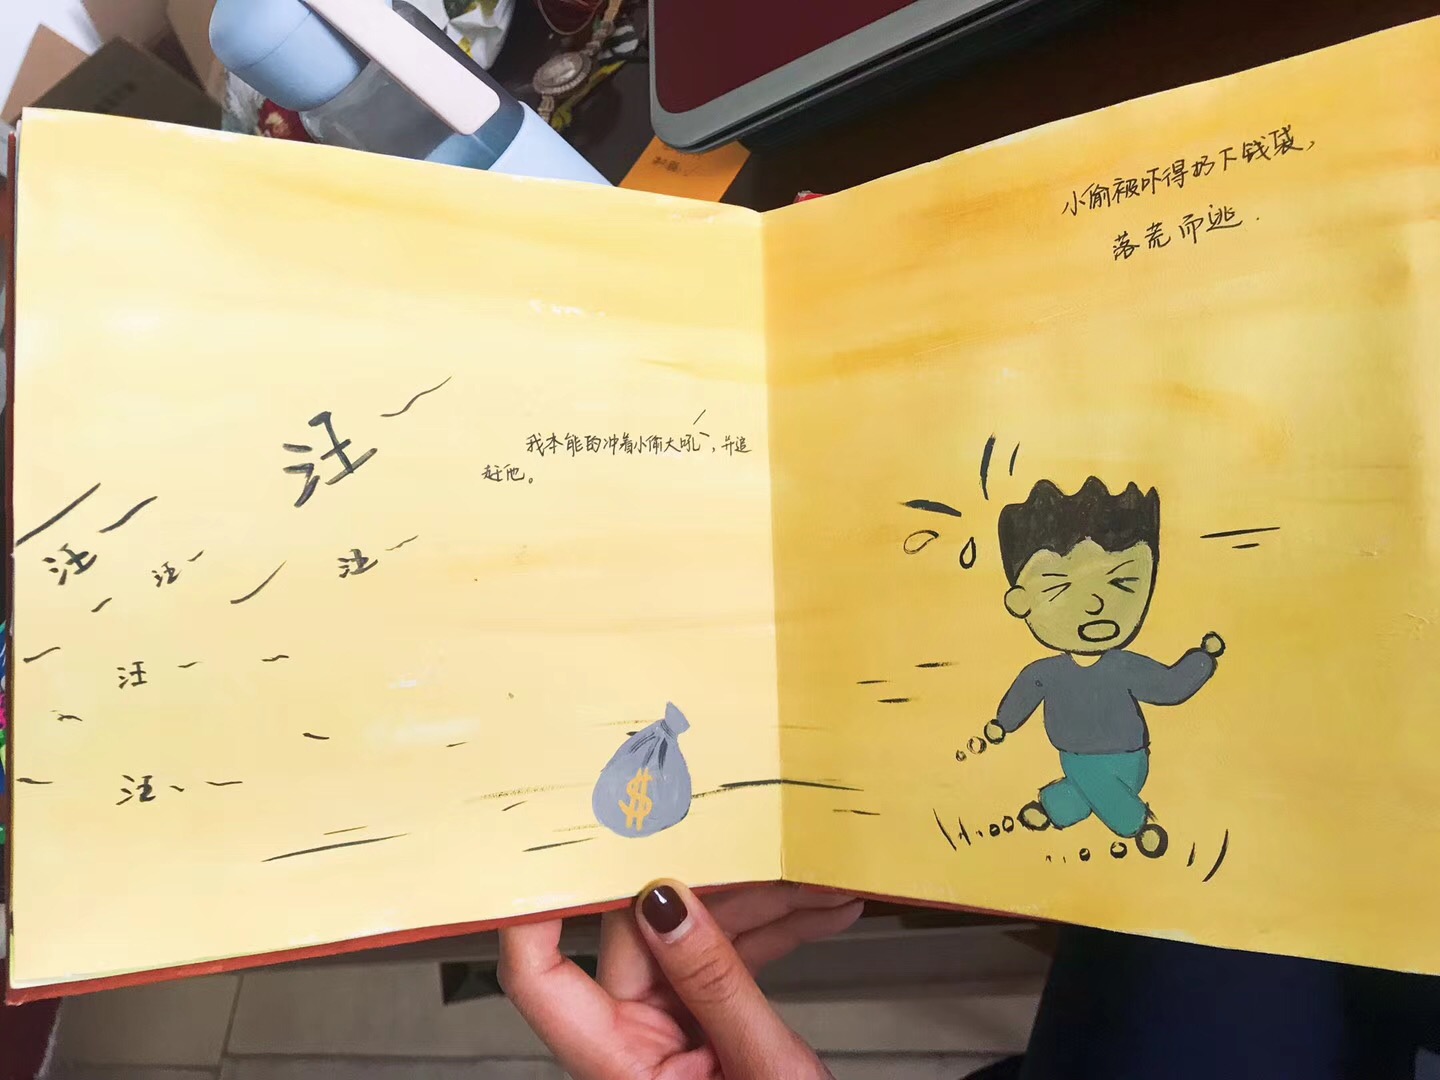 汪
汪
汪
汪
汪
汪
我本能的冲着小偷大吼,并追
赶他。
$
小偷被吓得扔下钱袋,
落荒而逃.